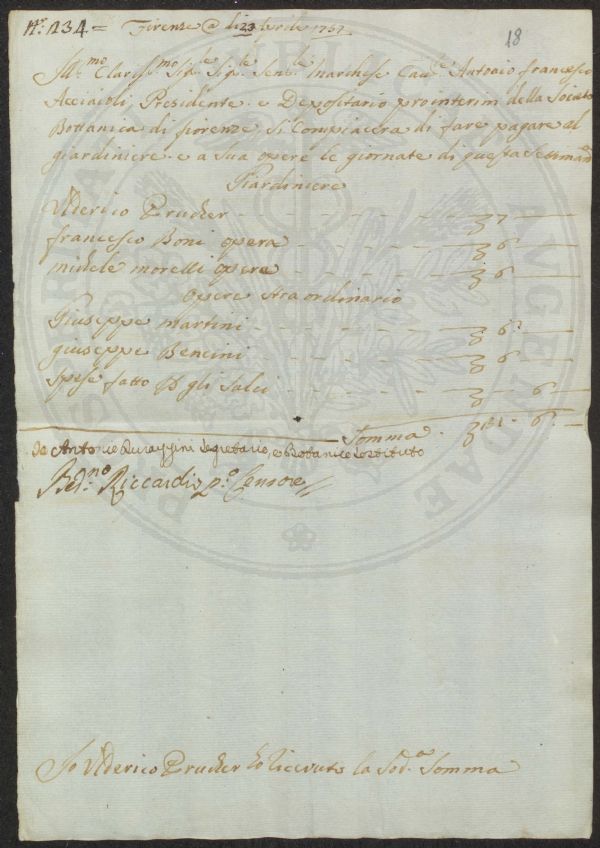 N.º 234 = Firenze @ dì 23 Aprile 1757
18
Ill.mo Clariss.mo Sig.re Sig.re Sen.e Marchese Cav.re Antonio Francesco
Acciaioli, Presidente e Depositario prointerim della Società
Bottanica di fiorenze, si Compiacera di fare pagare al
giardiniere e a Sua opere le giornate di questa Settimana
Giardiniere
Ulderico Prucker - - - - 7 -
francesco Boni opera - - - - 6 -
michele morelli opera - - - - 6 -
opere straordinario
Giuseppe martini - - - - 6 -
giuseppe Bencini - - - - 6 -
Spese fatto p gli Salci - - - - 6 -
Somma - 31 - 6 -
Io Antonio Durazzini Segretario, e Botanico Sostituto
Bed.no Riccardi p.o Censore
Io Ulderico Prucker ho riceuto la Sod.a Somma